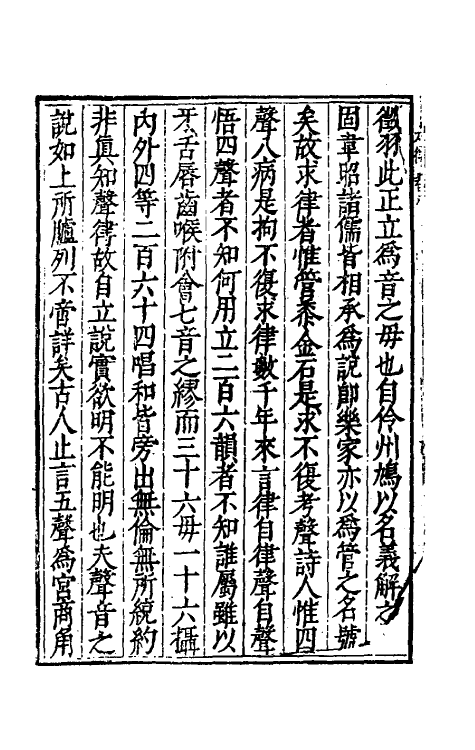 徵羽此正立爲音之毋也自伶州鳩以名義解之
固韋昭諸儒皆相承爲說卽樂家亦以爲管之名號
矣故求律者惟管黍金石是求不復考聲詩人惟四
聲八病是拘不復求律數千年來言律自律聲自聲
悟四聲者不知何用立二百六韻者不知誰屬雖以
牙舌唇齒喉附會七音之繆而三十六毋一十六攝
内外四等二百六十四唱和皆旁出無倫無所統約
非眞知聲律故自立說實欲明不能明也夫聲音之
說如上所臚列不啻詳矣古人止言五聲爲宮商角